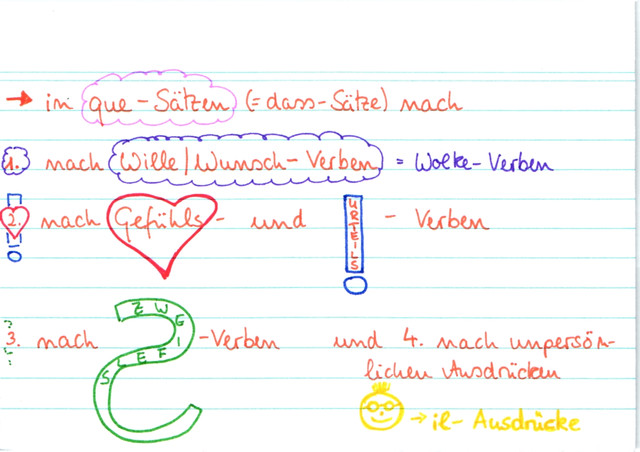 → in que-Sätzen (= dass-Sätze) nach
1. nach Wille/Wunsch-Verben = Wolke-Verben
2. nach Gefühls- und URTEILS - Verben
3. nach ZWEIFELS -Verben und 4. nach unpersön-
lichen Ausdrücken
→ il-Ausdrücke